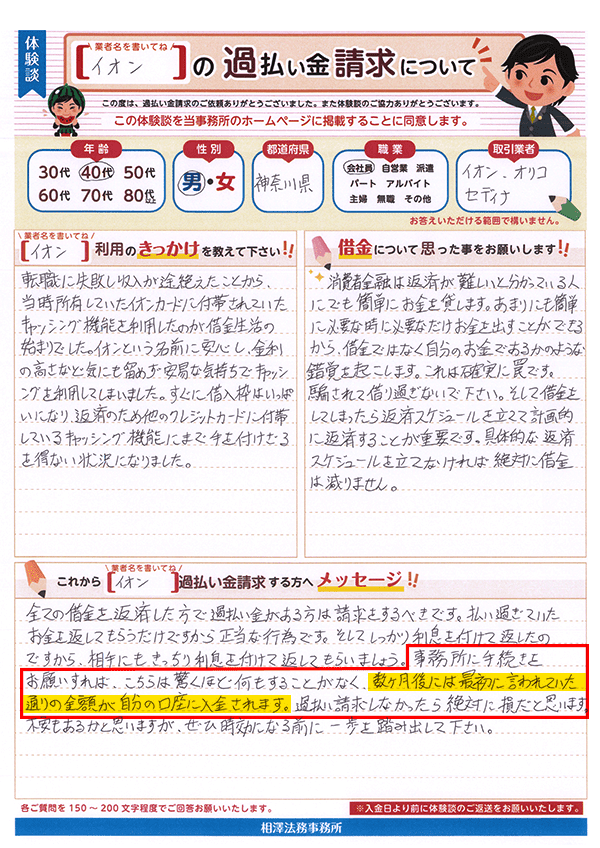 体験談
業者名を書いてね
[イオン]の過払い金請求について
この度は、過払い金請求のご依頼ありがとうございました。また体験談のご協力ありがとうございます。
この体験談を当事務所のホームページに掲載することに同意します。
年齢
30代 40代 50代
60代 70代 80代以上
性別
男・女
都道府県
神奈川県
職業
会社員 自営業 派遣
パート アルバイト
主婦 無職 その他
取引業者
イオン、オリコ
セディナ
お答えいただける範囲で構いません。
業者名を書いてね
[イオン]利用のきっかけを教えて下さい!!
転職に失敗し収入が途絶えたことから、
当時所有していたイオンカードに付帯されていた
キャッシング機能を利用したのが借金生活の
始まりでした。イオンという名前に安心し、金利
の高さなど気にも留めず安易な気持ちでキャッシ
ングを利用してしまいました。すぐに借入枠はいっぱ
いになり、返済のため他のクレジットカードに付帯
しているキャッシング機能にまで手を付けざる
を得ない状況になりました。
借金について思った事をお願いします!!
消費者金融は返済が難しいと分かっている人
にでも簡単にお金を貸します。あまりにも簡単
に必要な時に必要なだけお金を出すことができる
から、借金ではなく自分のお金であるかのような
錯覚を起こします。これは確実に罠です。
騙されて借り過ぎないで下さい。そして借金を
してしまったら返済スケジュールを立てて計画的
に返済することが重要です。具体的な返済
スケジュールを立てなければ絶対に借金
は減りません。
業者名を書いてね
これから[イオン]過払い金請求する方へメッセージ!!
全ての借金を返済した方で過払い金がある方は請求をするべきです。払い過ぎていた
お金を返してもらうだけですから正当な行為です。そしてしっかり利息を付けて返したの
ですから、相手にもきっちり利息を付けて返してもらいましょう。事務所に手続きを
お願いすれば、こちらは驚くほど何もすることがなく、数ヶ月後には最初に言われていた
通りの金額が自分の口座に入金されます。過払い請求しなかったら絶対に損だと思います。
不安もあるかと思いますが、ぜひ時効になる前に一歩を踏み出して下さい。
各ご質問を150～200文字程度でご回答お願いいたします。
※入金日より前に体験談のご返送をお願いいたします。
相澤法務事務所